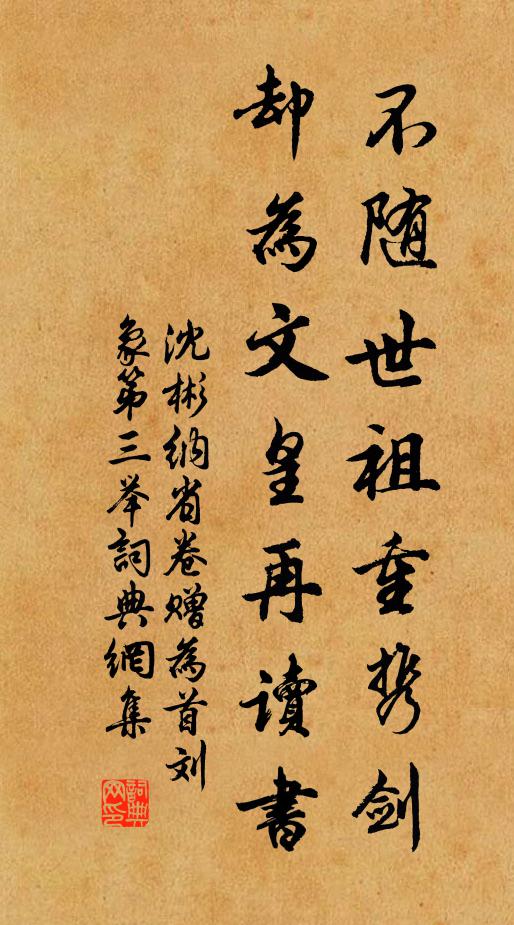 不随世祖重携剑
却為文皇再讀書
沈彬纳省卷赠為首刘
象第三举詞典網集
詞典
网印